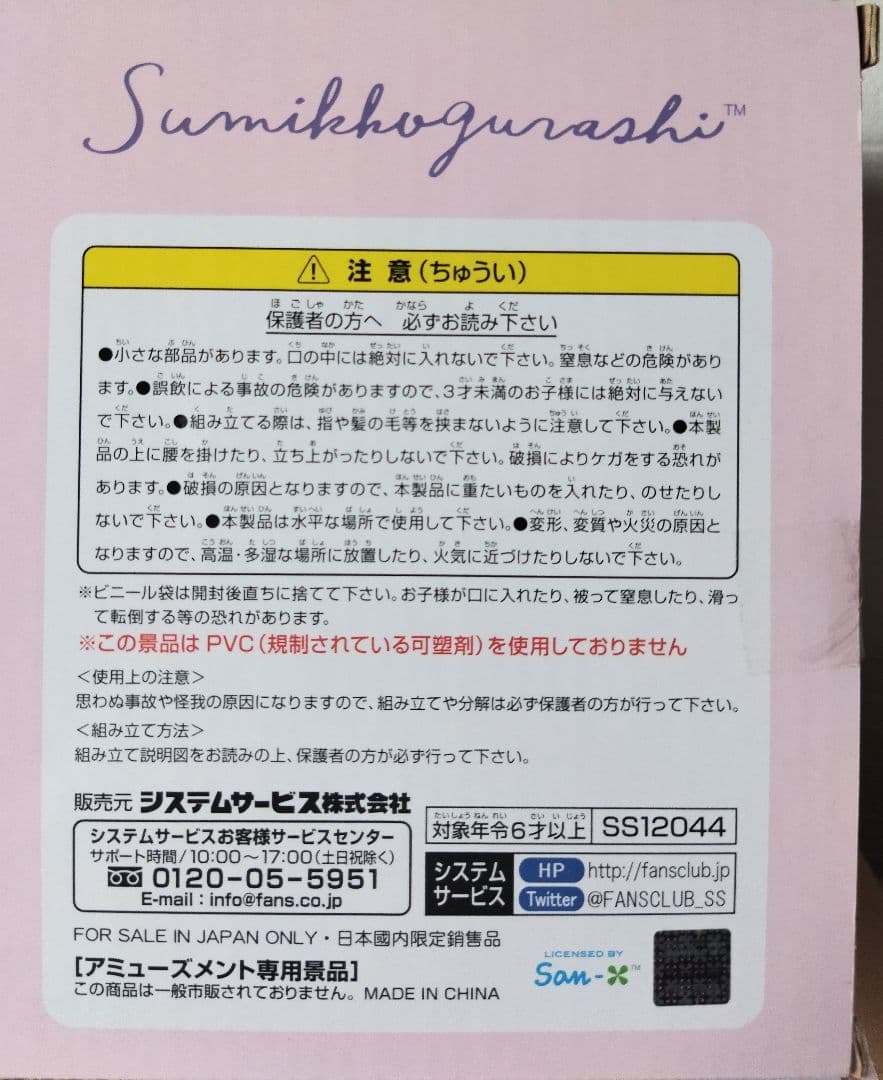 Sumikkogurashi™
⚠ 注意(ちゅうい)
保護者の方へ 必ずお読み下さい
●小さな部品があります。口の中には絶対に入れないで下さい。窒息などの危険があり
ます。●誤飲による事故の危険がありますので、3才未満のお子様には絶対に与えない
で下さい。●組み立てる際は、指や髪の毛等を挟まないように注意して下さい。●本製
品の上に腰を掛けたり、立ち上がったりしないで下さい。破損によりケガをする恐れが
あります。●破損の原因となりますので、本製品に重たいものを入れたり、のせたりし
ないで下さい。●本製品は水平な場所で使用して下さい。●変形、変質や火災の原因と
なりますので、高温・多湿な場所に放置したり、火気に近づけたりしないで下さい。
※ビニール袋は開封後直ちに捨てて下さい。お子様が口に入れたり、被って窒息したり、滑っ
て転倒する等の恐れがあります。
※この景品は PVC(規制されている可塑剤)を使用しておりません
<使用上の注意>
思わぬ事故や怪我の原因になりますので、組み立てや分解は必ず保護者の方が行って下さい。
<組み立て方法>
組み立て説明図をお読みの上、保護者の方が必ず行って下さい。
販売元 システムサービス株式会社
システムサービスお客様サービスセンター
サポート時間/10:00〜17:00(土日祝除く)
0120-05-5951
E-mail:info@fans.co.jp
対象年令6才以上 SS12044
システムサービス
HP http://fansclub.jp
Twitter @FANSCLUB_SS
FOR SALE IN JAPAN ONLY・日本國内限定銷售品
[アミューズメント専用景品]
この商品は一般市販されておりません。 MADE IN CHINA
LICENSED BY
San-X™